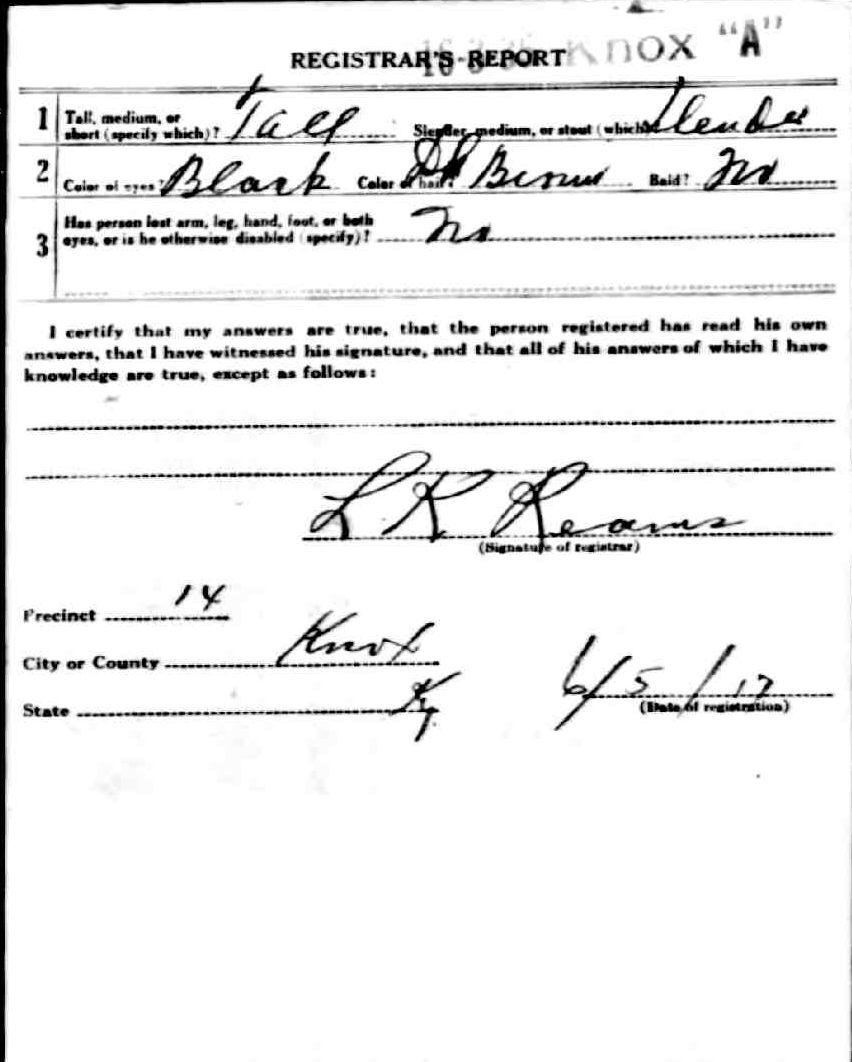 REGISTRAR'S REPORT Knox "A"
1 Tall, medium, or short (specify which)? Tall Slender, medium, or stout (which)? Slender
2 Color of eyes? Black Color of hair? Dk Brown Bald? No
3 Has person lost arm, leg, hand, foot, or both
eyes, or is he otherwise disabled (specify)? No
I certify that my answers are true, that the person registered has read his own
answers, that I have witnessed his signature, and that all of his answers of which I have
knowledge are true, except as follows:
L R Reams
(Signature of registrar)
Precinct 14
City or County Knox
State Ky 6/5/17
(Date of registration)